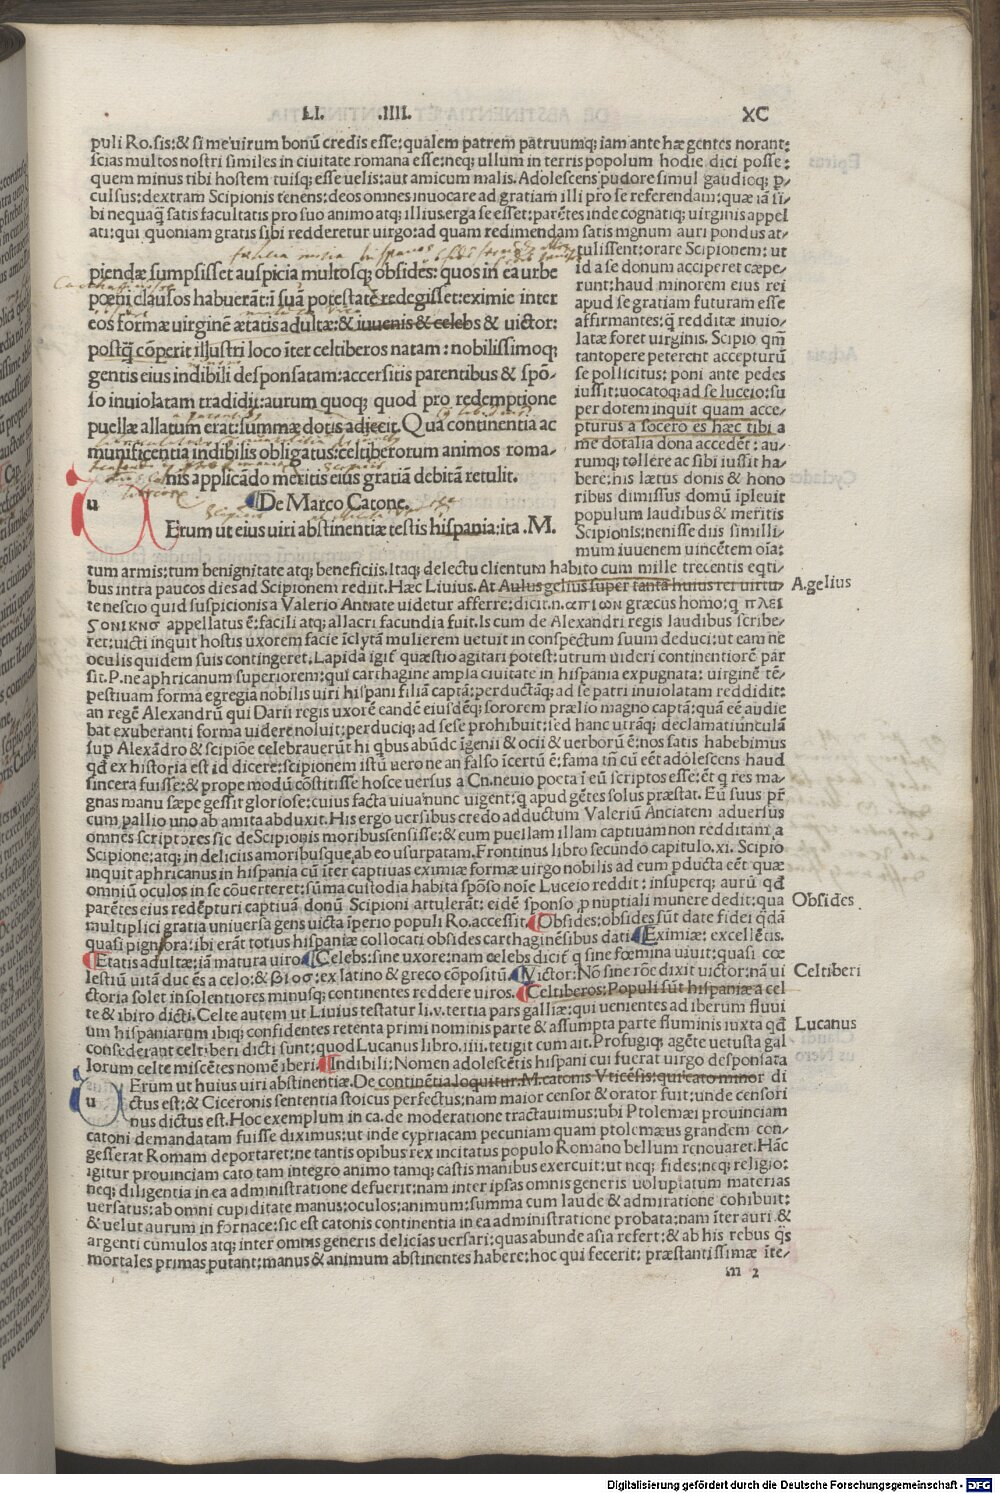 LI .IIII. XC
puli Ro.sis:& si me uirum bonū credis esse:qualem patrem patruumq; iam ante hæ gentes norant:
scias multos nostri similes in ciuitate romana esse:neq; ullum in terris populum hodie dici posse:
quem minus tibi hostem tuisq; esse uelis:aut amicum malis. Adolescens pudore simul gaudioq; ꝑ
culsus:dextram Scipionis tenens:deos omnes inuocare ad gratiam illi pro se referendam:quæ iā si/
bi nequaq̄ satis facultatis pro suo animo atq; illius.erga se esset:parētes inde cognatiq; uirginis appel
ati:qui quoniam gratis sibi redderetur uirgo:ad quam redimendam satis mgnum auri pondus at/
tulissent:orare Scipionem: ut
id a se donum acciperet cæpe/
runt:haud minorem eius rei
apud se gratiam futuram esse
affirmantes:q̄ redditæ inuio/
latæ foret uirginis. Scipio qm̄
tantopere peterent accepturū
se pollicitus: poni ante pedes
iussit:uocatoq; ad se luceio:su
per dotem inquit quam acce/
pturus a socero es hæc tibi a
me dotalia dona accedēt: au/
rumq; tollere ac sibi iussit ha/
bere:his lætus donis & hono
ribus dimissus domū īpleuit
populum laudibus & meritis
Scipionis:uenisse diis simili/
mum iuuenem uincētem oīa:
piendæ sumpsisset auspicia multosq; obsides: quos in ea urbe
pœni clausos habuerāt:ī suā potestatē redegisset:eximie inter
eos formæ uirginē ætatis adultæ:& iuuenis & celebs & uictor:
postq̄ cōperit illustri loco īter celtiberos natam: nobilissimoq;
gentis eius indibili desponsatam:accersitis parentibus & spō/
so inuiolatam tradidit:aurum quoq; quod pro redemptione
puellæ allatum erat:summæ dotis adiecit. Qua continentia ac
munificentia indibilis obligatus:celtiberorum animos roma/
nis applicādo meritis eius gratiā debitā retulit.
De Marco Catone.
u
Erum ut eius uiri abstinentiæ testis hispania:ita .M.
tum armis:tum benignitate atq; beneficiis. Itaq; delectu clientum habito cum mille trecentis eqti/
bus intra paucos dies ad Scipionem rediit. Hæc Liuius. At Aulus gelius super tanta huius rei uirtu/ A.gelius
te nescio quid suspicionis a Valerio Antiate uidetur afferre:dicit.n.απιων græcus homo:q πλει
ϛονικησ appellatus ē:facili atq; allacri facundia fuit. Is cum de Alexandri regis laudibus scribe/
ret:uicti inquit hostis uxorem facie īclytā mulierem uetuit in conspectum suum deduci:ut eam ne
oculis quidem suis contingeret. Lapida igit̄ quæstio agitari potest:utrum uideri continentiorē par
sit.P.ne aphricanum superiorem:qui carthagine ampla ciuitate in hispania expugnata: uirginē tē/
pestiuam forma egregia nobilis uiri hispani filiā captā:perductāq; ad se patri inuiolatam reddidit:
an regē Alexandrū qui Darii regis uxorē eandē eiusdēq; sororem prælio magno captā:quā eē audie
bat exuberanti forma uidere noluit:perduciq; ad sese prohibuit:sed hanc utrāq; declamatiunculā
sup̄ Alexādro & scipiōe celebrauerūt hi qbus abūdc īgenii & ocii & uerborū ē:nos satis habebimus
qđ ex historia est id dicere:scipionem istū uero ne an falso īcertū ē:fama tn̄ cū eēt adolescens haud
sincera fuisse:& prope modū cōstitisse hosce uersus a Cn.neuio poeta ī eū scriptos esse:ēt q res ma/
gnas manu sæpe gessit gloriose:cuius facta uiua nunc uigent:q apud gētes solus præstat. Eū suus pr̄
cum pallio uno ab amita abduxit. His ergo uersibus credo adductum Valeriū Anciatem aduersus
omnes scriptores sic de Scipionis moribus sensisse:& eum puellam illam captiuam non redditam a
Scipione:atq; in deliciis amoribusque ab eo usurpatam. Frontinus libro secundo capitulo.xi. Scipio
inquit aphricanus in hispania cū īter captiuas eximiæ formæ uirgo nobilis ad eum pducta eēt quæ
omniū oculos in se cōuerteret:sūma custodia habita spōso noīe Luceio reddit: insuperq; aurū qđ
parētes eius redēpturi captiuā donū Scipioni artulerāt: eidē sponso ꝓ nuptiali munere dedit:qua Obsides
multiplici gratia uniuersa gens uicta īperio populi Ro.accessit. Obsides:obsides sūt date fidei qđā
quasi pignora:ibi erāt totius hispaniæ collocati obsides carthaginēsibus dati. Eximiæ: excellētis.
Etatis adultæ:iā matura uiro. Celebs:sine uxore:nam celebs dicit̄ q sine fœmina uiuit:quasi cœ
lestiū uitā ducēs a celo:& βιοσ:ex latino & greco cōpositū. Victor:Nō sine rōe dixit uictor:nā ui Celtiberi
ctoria solet insolentiores minusq; continentes reddere uiros. Celtiberos:Populi sūt hispaniæ a cel
te & ibiro dicti. Celte autem ut Liuius testatur li.v.tertia pars galliæ:qui uenientes ad iberum fluui
um hispaniarum ibiq; confidentes retenta primi nominis parte & assumpta parte fluminis iuxta qđ Lucanus
consederant celtiberi dicti sunt:quod Lucanus libro.iiii.tetigit cum ait. Profugiq; agēte uetusta gal
lorum celte miscētes nomē iberi. Indibili:Nomen adolescētis hispani cui fuerat uirgo desponsata
u
Erum ut huius uiri abstinentiæ. De continētia loquitur.M.catonis Vticēsis:qui cato minor di
ctus est:& Ciceronis sententia stoicus perfectus:nam maior censor & orator fuit:unde censori
nus dictus est. Hoc exemplum in ca.de moderatione tractauimus:ubi Ptolemæi prouinciam
catoni demandatam fuisse diximus:ut inde cypriacam pecuniam quam ptolemæus grandem con/
gesserat Romam deportaret:ne tantis opibus rex incitatus populo Romano bellum renouaret. Hāc
igitur prouinciam cato tam integro animo tamq; castis manibus exercuit:ut neq; fides:neq; religio:
neq; diligentia in ea administratione defuerit:nam inter ipsas omnis generis uoluptatum materias
uersatus:ab omni cupiditate manus:oculos:animum:summa cum laude & admiratione cohibuit:
& uelut aurum in fornace:sic est catonis continentia in ea administratione probata:nam īter auri &
argenti cumulos atq; inter omnis generis delicias uersari:quas abunde asia refert:& ab his rebus q̄s
mortales primas putant:manus & animum abstinentes habere:hoc qui fecerit: præstantissimæ īte/
m 2
Digitalisierung gefördert durch die Deutsche Forschungsgemeinschaft - DFG